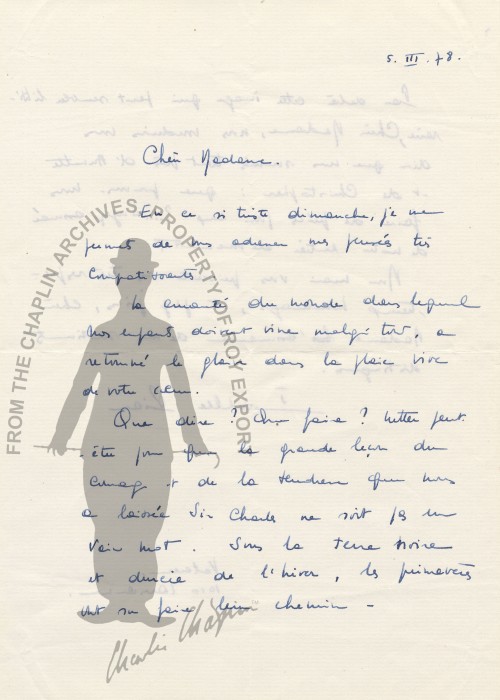 5. III. 78.
Chère Madame.
En ce si triste dimanche, je me
permets de vous adresser mes pensées très
compatissantes.
La cruauté du monde dans lequel
nos enfants doivent vivre malgré tout, a
retourné le glaive dans la plaie vive
de votre cœur.
Que dire ? Que faire ? Lutter peut-
être pour que la grande leçon du
courage et de la tendresse que nous
a laissée Sir Charles ne soit pas un
vain mot. Sous la terre noire
et durcie de l'hiver, les primevères
ont su faire leur chemin -
FROM THE CHAPLIN ARCHIVES, PROPERTY OF ROY EXPORT
Charlie Chaplin